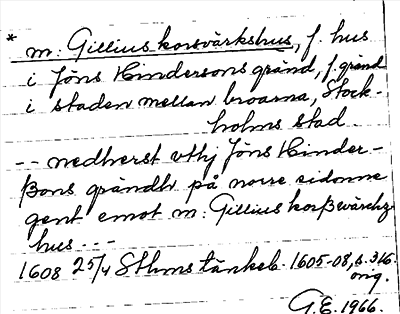 * m: Gillius korsvärkshus, f. hus
i Jöns Hindersons gränd, f. gränd
i staden mellan broarna, Stock-
holms stad.
-- nedherst vthj Jöns Hinder-
ßons grändh på norre sidonne
gent emot m: Gillius korßwärckz
hus - - -
1608 25/4 Sthms tänkeb. 1605-08, s. 316.
orig.
G.E. 1966.